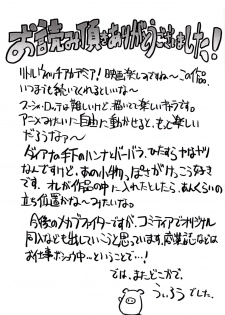 お読み頂きありがとうございました!
リトルウィッチアカデミア!映画楽しみですね〜この作品、
いつまでも続いてくれるといいな〜
シャーロッテは難しいけど、描いてて楽しいキャラです。
アニメみたいに自由に動かせると、もっと楽しい
だろうなァ〜
ダイアナの手下のハンナとバーバラ、ひたすらヤなヤツ
なんですけど、あの小物っぽさがけっこう好き
です、オレが作品の中に入れたとしたら、あんくらいの
立ち位置かな〜みたいな。
今後のメカブファイターですが、コミティアでオリジナル
同人なども出していこうと思っています。商業誌などは
お仕事ボシュウ中…ということで…!
では、またどこかで、
ういろうでした。